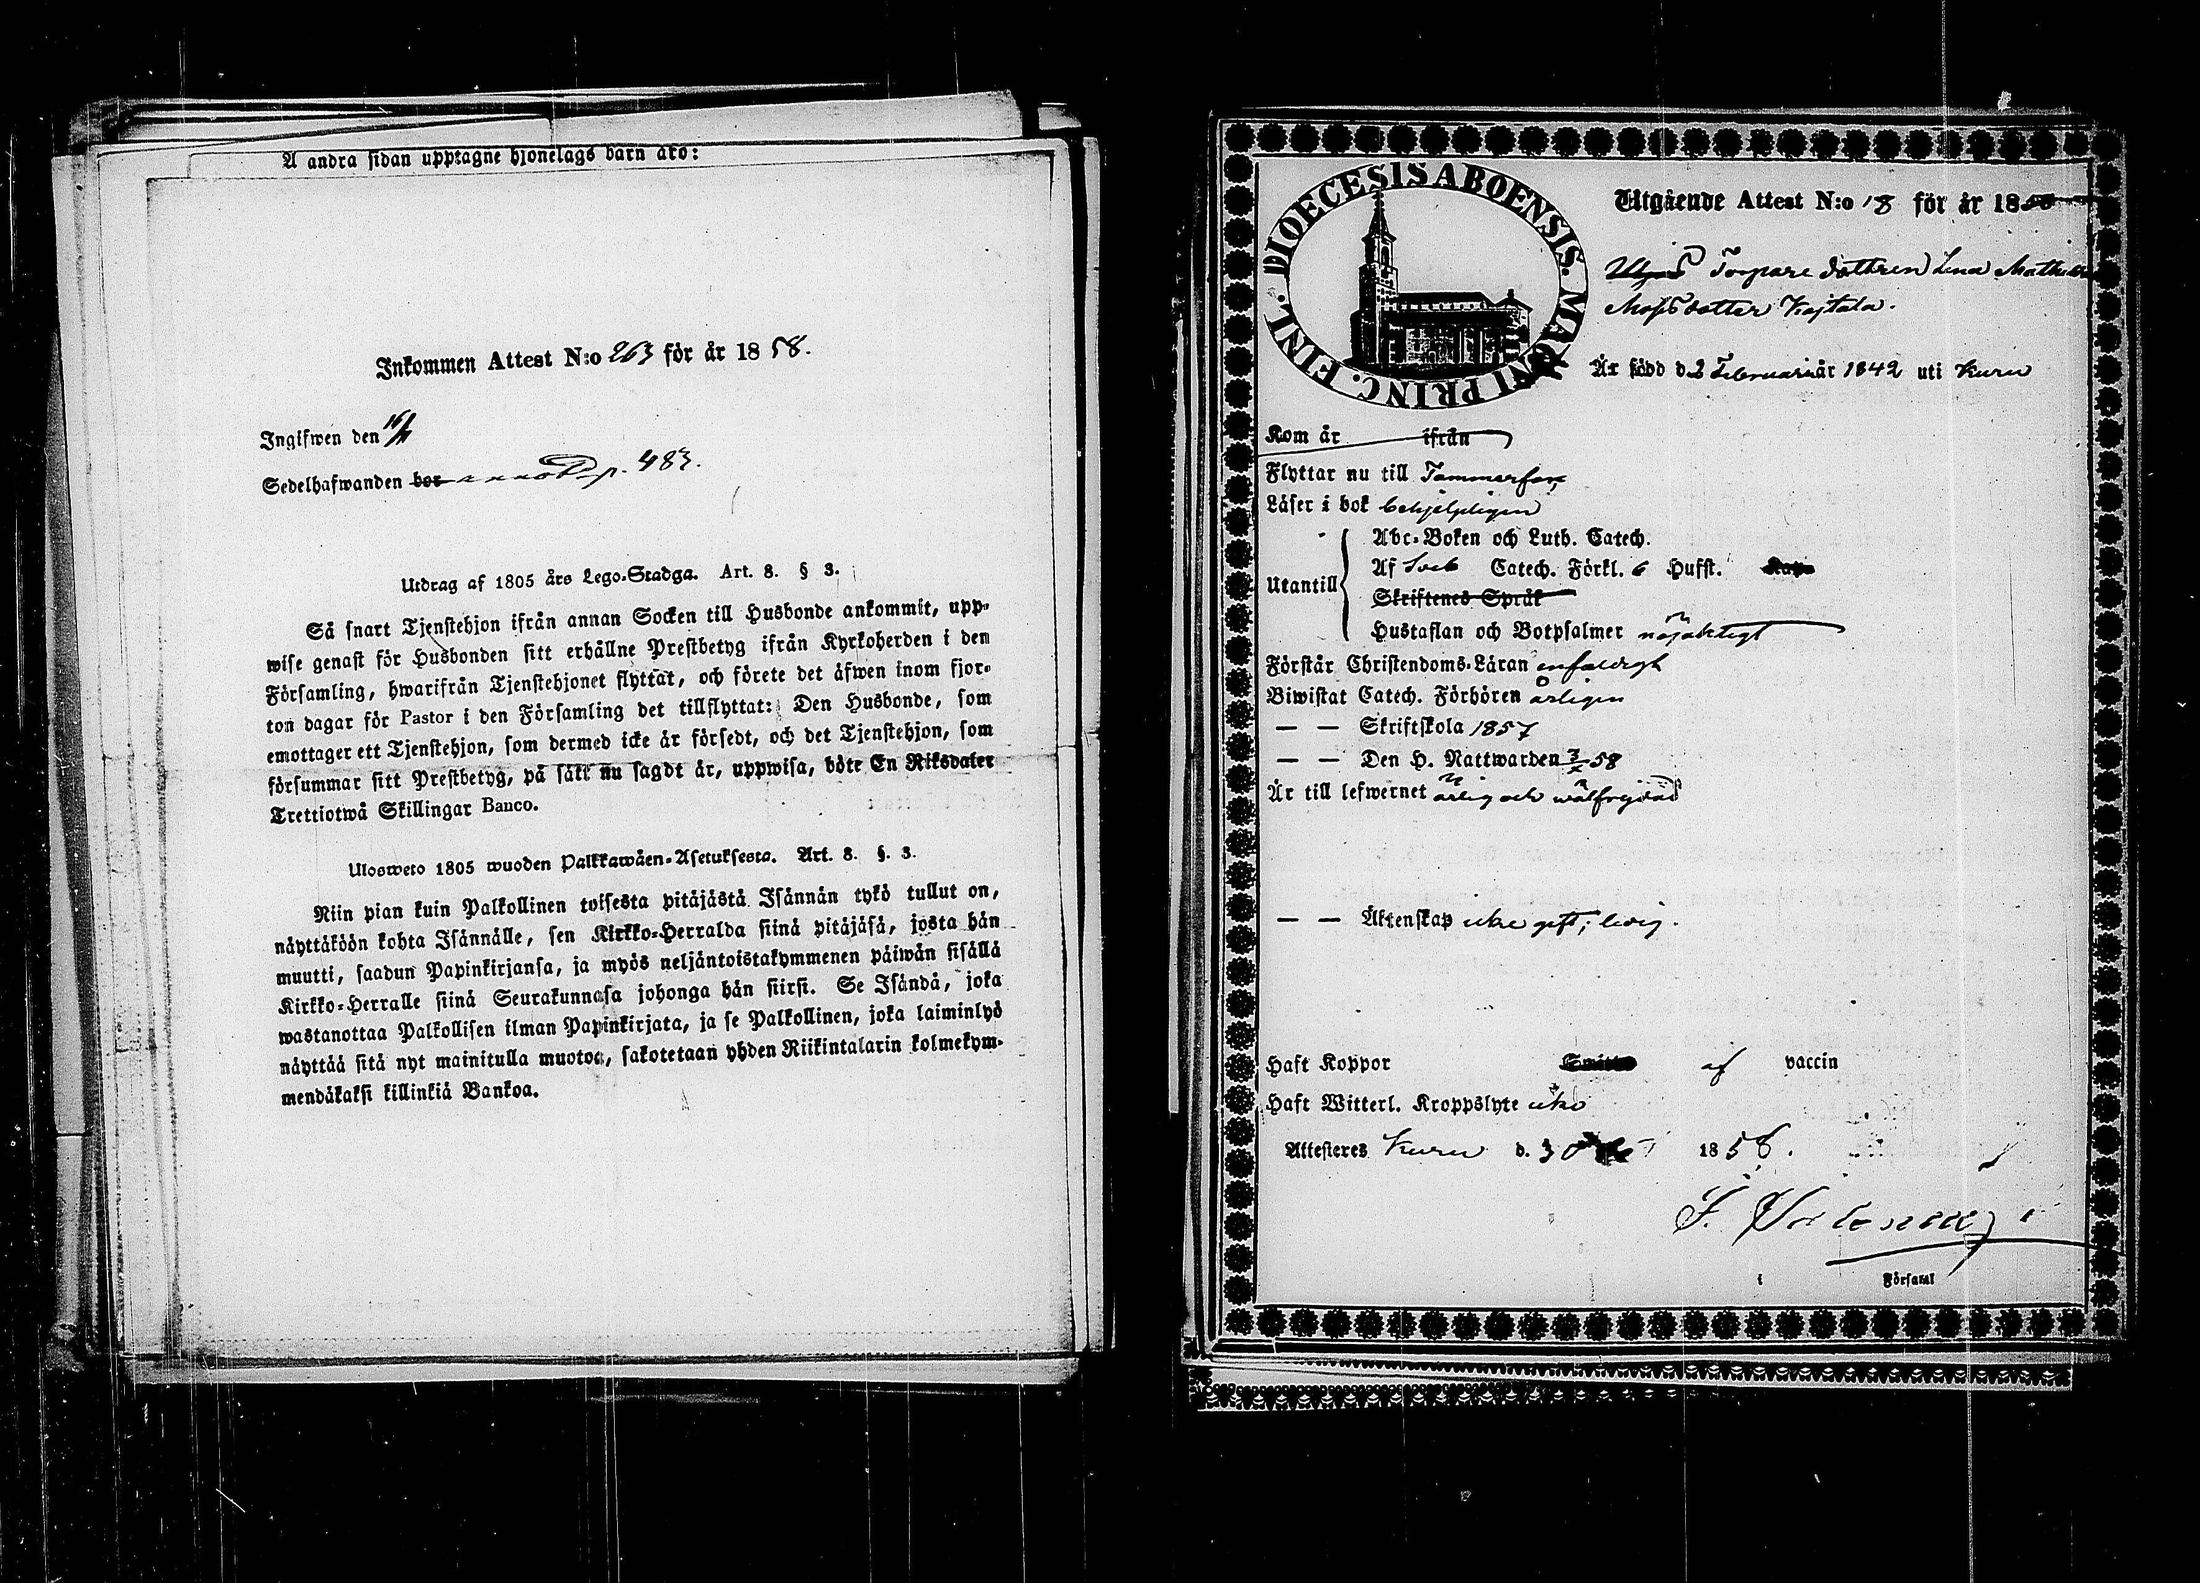 Å andra sidan upptagne hjonelags barn äro:
Inkommen Attest N:o 263 för år 1858.
Ingifwen den 16/11
Sedelhafwanden bor annot. p. 483.
Utdrag af 1805 års Lego-Stadga. Art. 8. § 3.
Så snart Tjenstehjon ifrån annan Socken till Husbonde ankommit, upp-
wise genast för Husbonden sitt erhållne Prestbetyg ifrån Kyrkoherden i den
Församling, hwarifrån Tjenstehjonet flyttat, och förete det äfwen inom fjor-
ton dagar för Pastor i den Församling det tillflyttat: Den Husbonde, som
emottager ett Tjenstehjon, som dermed icke är försedt, och det Tjenstehjon, som
försummar sitt Prestbetyg, på sätt nu sagdt är, uppwisa, böte En Riksdaler
Trettiotwå Skillingar Banco.
Ulosweto 1805 wuoden Palkkawäen-Asetuksesta. Art. 8. §. 3.
Niin pian kuin Palkollinen toisesta pitäjästä Isännän tykö tullut on,
näyttäköön kohta Isännälle, sen Kirkko-Herralda siinä pitäjäsä, josta hän
muutti, saadun Papinkirjansa, ja myös neljäntoistakymmenen päiwän sisällä
Kirkko-Herralle siinä Seurakunnasa johonga hän siirsi. Se Isändä, joka
wastanottaa Palkollisen ilman Papinkirjata, ja se Palkollinen, joka laiminlyö
näyttää sitä nyt mainitulla muotoa, sakotetaan yhden Riikintalarin kolmekym-
mendäkaksi killinkiä Bankoa.
DIOECESIS ABOENSIS. MAGNI PRINC. FINL.
Utgående Attest N:o 18 för år 1858
Torpare dottren Lena Mathilda
Mosisdotter Kojtala.
Är född d. 2 Februarii år 1842 uti Kuru
Kom år ifrån
Flyttar nu till Tammerfors
Läser i bok behjelpligen
Utantill
Abc-Boken och Luth. Catech.
Af Sveb Catech. Förkl. 6 Hufst.
Skriftenes Språk
Hustaflan och Botpsalmer nöjaktigt
Förstår Christendoms-Läran enfaldigt
Biwistat Catech. Förhören årligen
— — Skriftskola 1857
— — Den H. Nattwarden 3/x 58
Är till lefwernet ärlig och wälfrejdad
— — Äktenskap icke gift, ledig.
Haft Koppor af vaccin
Haft Witterl. Kroppslyte icke
Attesteres Kuru d. 30 1858.
i Församl